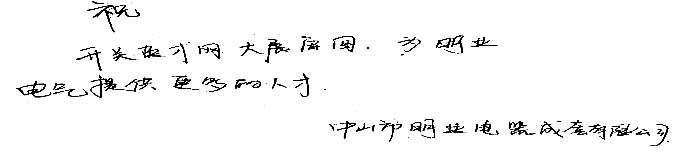 祝
开关英才网大展宏图.为明业
电气提供更多的人才.
中山市明业电器成套有限公司